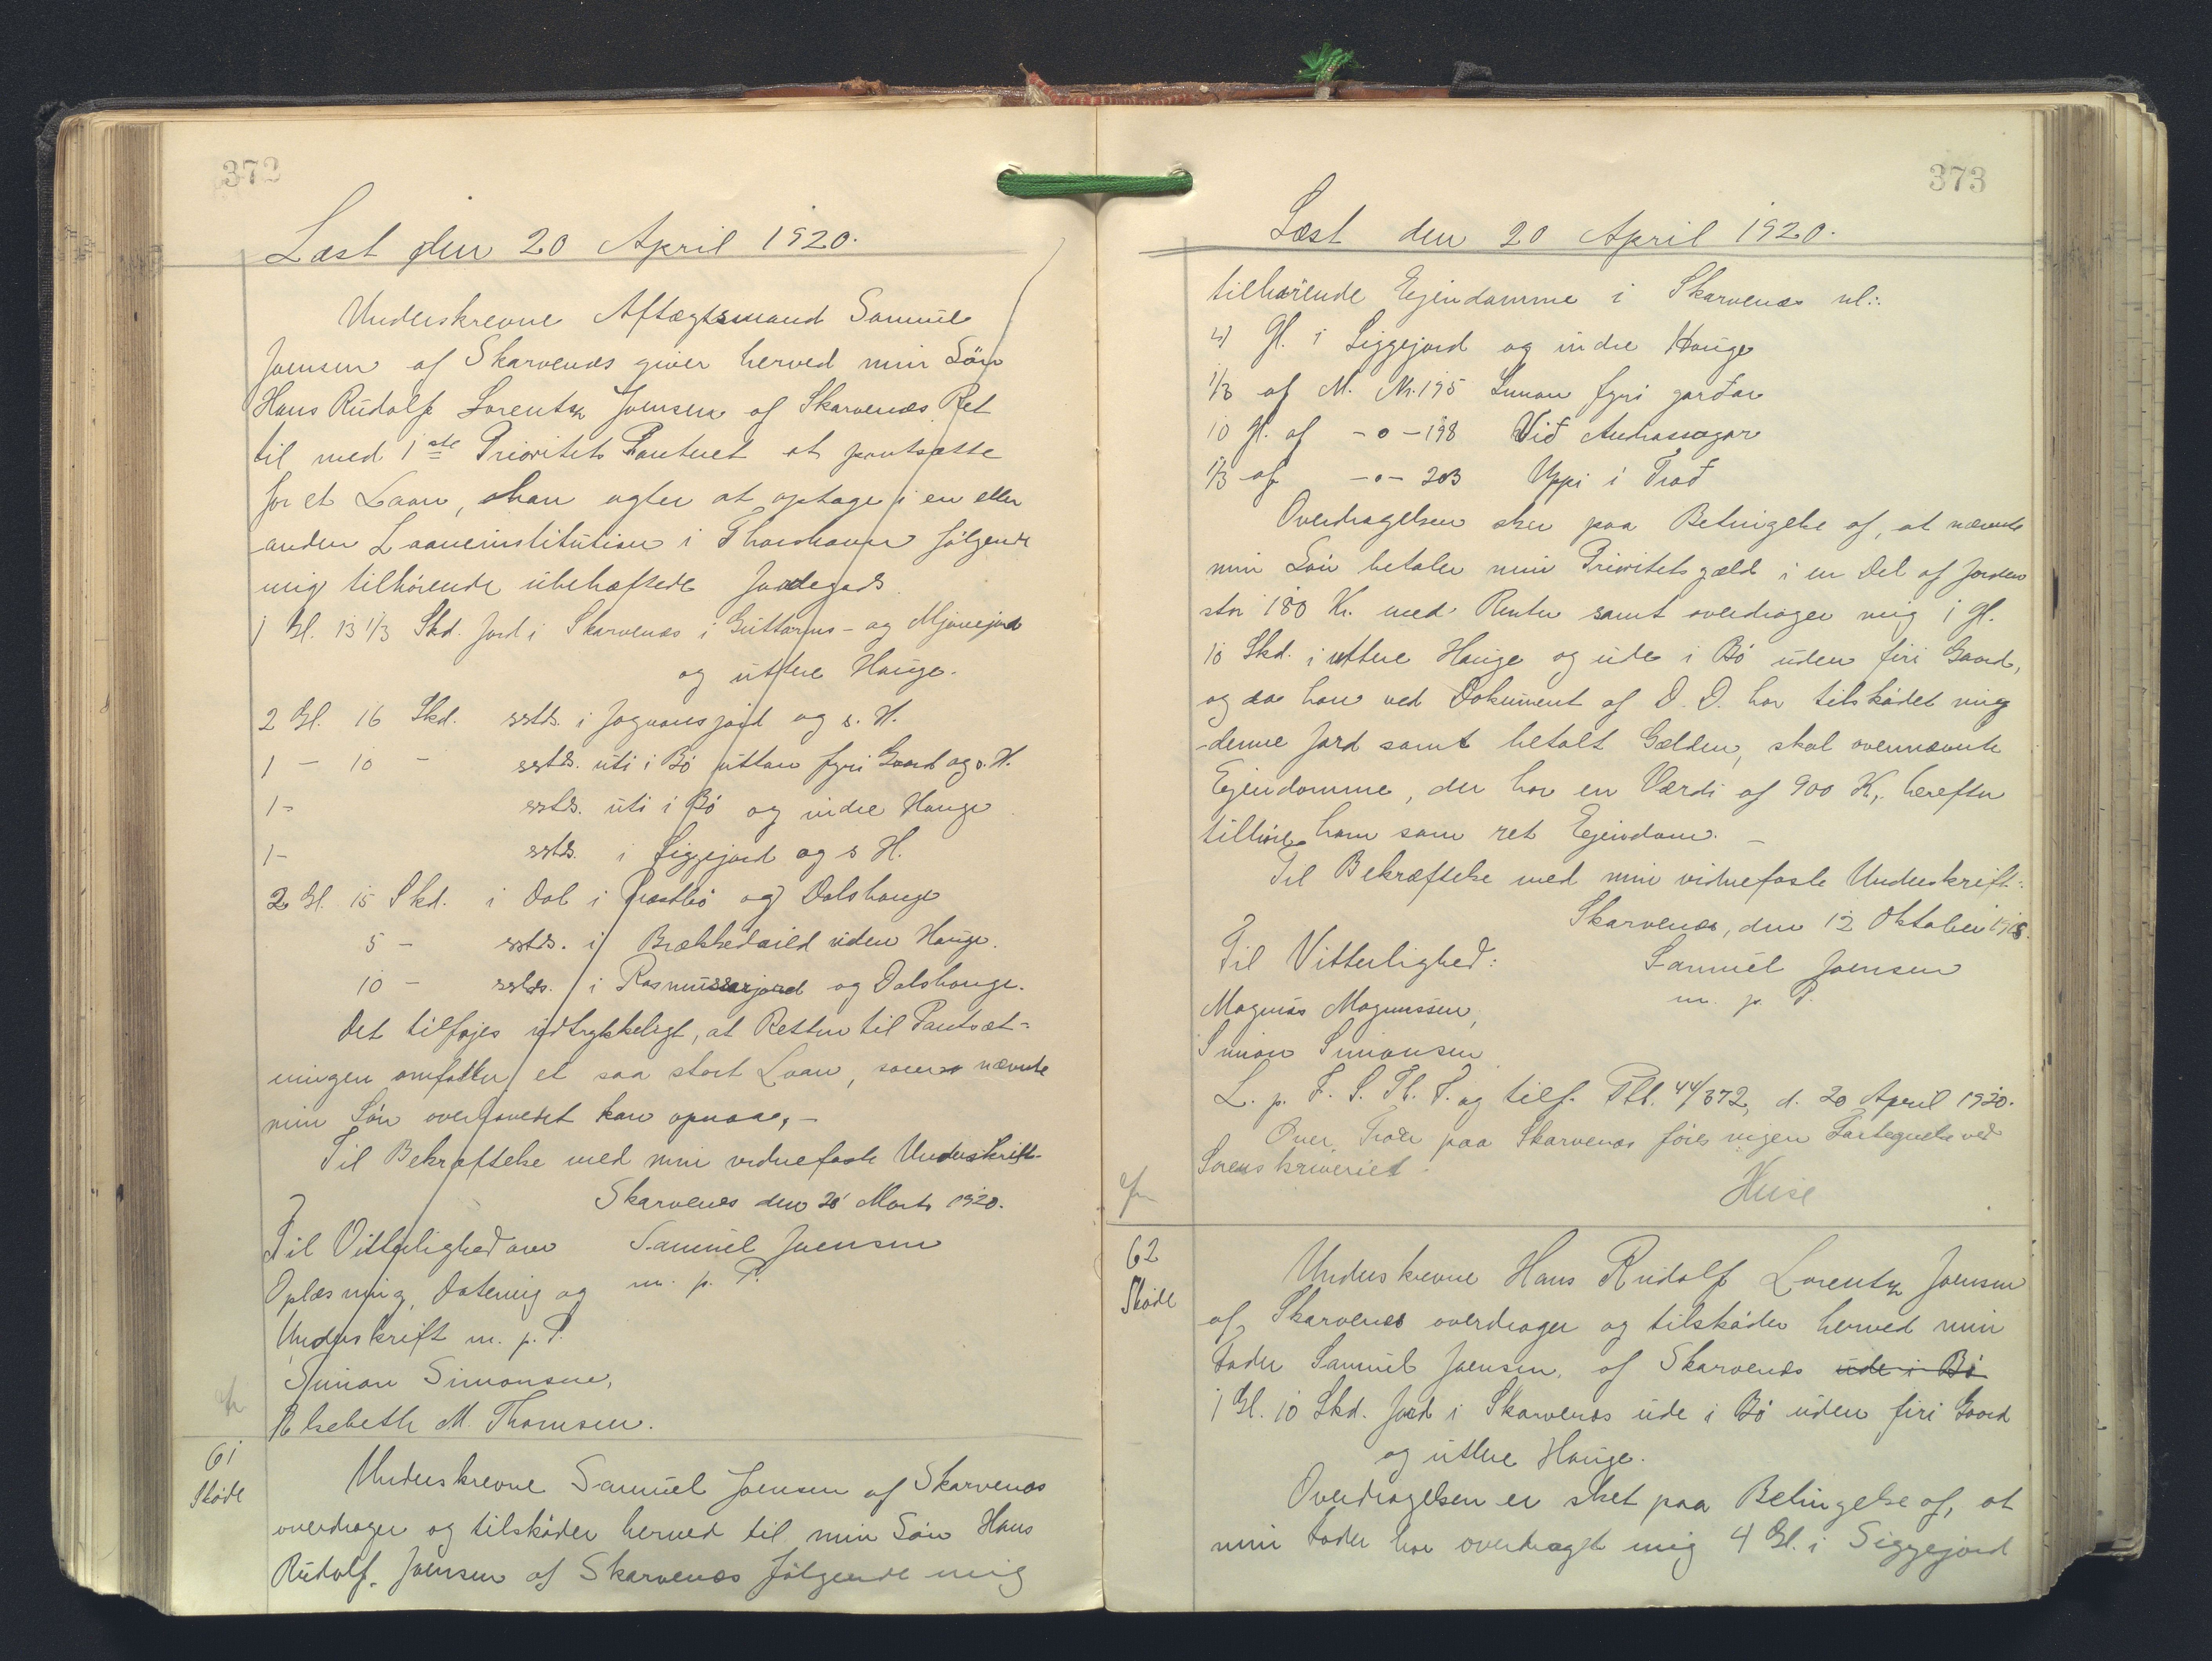 372
Læst den 20 April 1920.
Underskrevne Aftægtsmand Samuel
Joensen af Skarvenæs giver herved min Sön
Hans Rudolf Lorentz Joensen af Skarvenæs Ret
til med 1ste Prioritets Panteret at pantsætte
for et Laan, han agter at optage i en eller
anden Laaneinstitution i Thorshavn følgende
mig tilhørende ubehæftede Jordegods
1 Gl. 13 1/3 Skd. Jord i Skarvenæs i Guttorms- og Mjóvejord
og uttere Hauge.
2 Gl. 16 Skd. sstds. i Jogvansjord og s. H.
1 - 10 - sstds. uti i Bø uttan fyri Gaard og s. H.
1 - sstds. uti i Bø og indre Hauge
1 - sstds. i Siggejord og s H.
2 Gl. 15 Skd. i Dal i Præstbø og Dalshauge
5 - sstds. i uden Hauge.
10 - sstds. i Rasmussarjord og Dalshauge.
Det tilføjes udtrykkeligt, at Retten til Pantsæt-
ningen omfatter et saa stort Laan, som nævnte
min Søn overhovedet kan opnaae, -
Til Bekræftelse med min vidnefaste Underskrift.
Skarvenæs den 20 Marts 1920.
Til Vitterlighed om Samuel Joensen
Oplæsning, Datering og m. p. P.
Underskrift m. p. P.
Simon Simonsen,
Elsebeth M. Thomsen.
61
Skøde
Underskrevne Samuel Joensen af Skarvenæs
overdrager og tilskøder herved til min Søn Hans
Rudolf Joensen af Skarvenæs følgende mig
373
Læst den 20 April 1920.
tilhørende Ejendomme i Skarvenæs nl.:
4 Gl. i Siggejord og indre Hauge
1/3 af M. Nr. 195 Innan fyri garðar
10 Gl. af -o- 198 Við
1/3 af -o- 203 Uppi i Trøð
Overdragelsen sker paa Betingelse af, at nævnte
min Søn betaler min Prioritetsgæld i en Del af Jorden
stor 180 Kr. med Renter samt overdrager mig 1 Gl.
10 Skd. i uttere Hauge og ude i Bø uden firi Gaard,
og da han ved Dokument af D. D. har tilskødet mig
denne Jord samt betalt Gælden, skal ovennævnte
Ejendomme, der har en Værdi af 900 Kr. herefter
tilhøre ham som ret Ejendom. -
Til Bekræftelse med min vidnefaste Underskrift:
Skarvenæs, den 12 Oktober 1918.
Til Vitterlighed: Samuel Joensen
Magnus Magnussen, m. p. P.
Simon Simonsen
L. p. F. S. Th. T. og tilf. Ptb. 44/372, d. 20 April 1920.
Over Trøer paa Skarvenæs føres ingen Fortegnelse ved
Sorenskriveriet.
62
Skøde
Underskrevne Hans Rudolf Lorentz Joensen
af Skarvenæs overdrager og tilskøder herved min
Fader Samuel Joensen, af Skarvenæs ude i Bø
1 Gl. 10 Skd. Jord i Skarvenæs ude i Bø uden firi Gaard
og uttere Hauge.
Overdragelsen er sket paa Betingelse af, at
min Fader har overdraget mig 4 Gl. i Siggejord